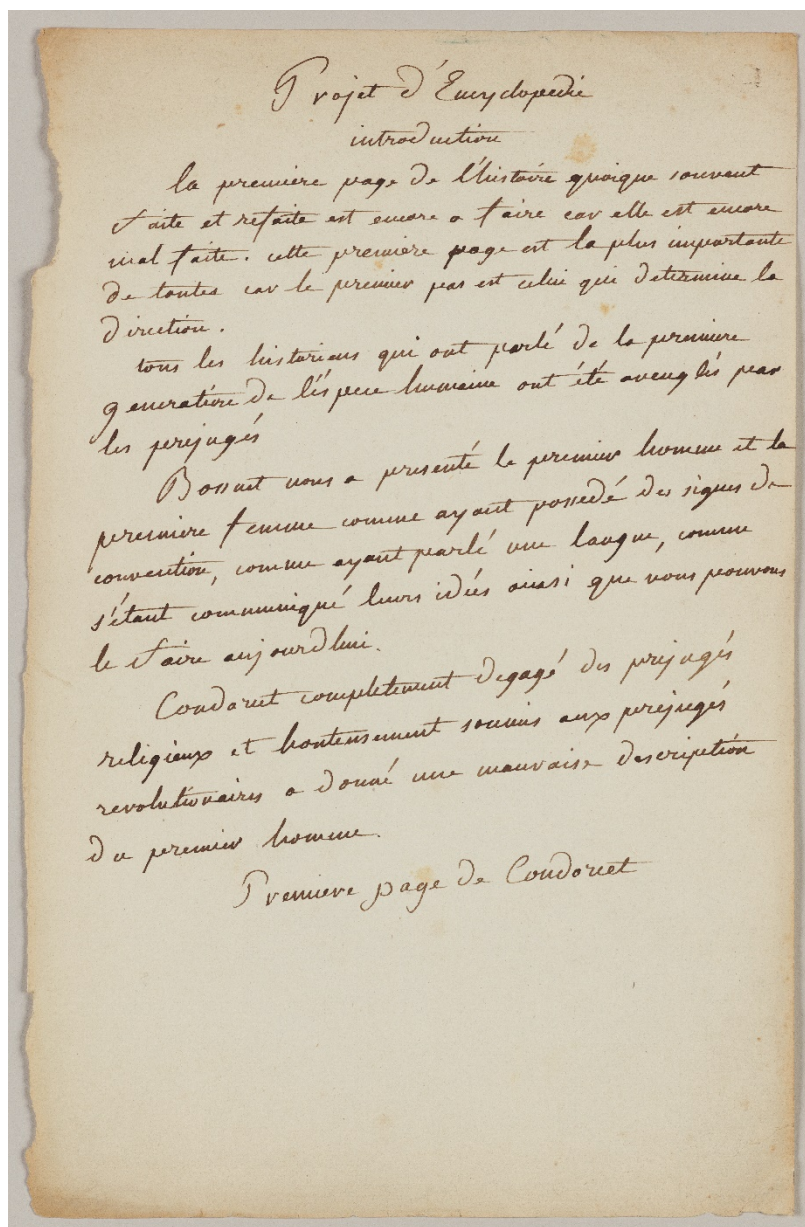 Projet d'Encyclopedie
introduction
la premiere page de l'histoire quoique souvent
faite et refaite est encore a faire car elle est encore
mal faite. cette premiere page est la plus importante
de toutes car le premier pas est celui qui determine la
direction.
tous les historiens qui ont parlé de la premiere
generation de l'éspece humaine ont été aveuglés par
les prejugés
Bossuet nous a presenté le premier homme et la
premiere femme comme ayant possedé des signes de
convention, comme ayant parlé une langue, comme
s'étant communiqué leurs idées ainsi que nous pouvons
le faire aujourdhui.
Condorcet completement degagé des prejugés
religieux et honteusement soumis aux prejugés
revolutionaires a donné une mauvaise description
du premier homme.
Premiere page de Condorcet